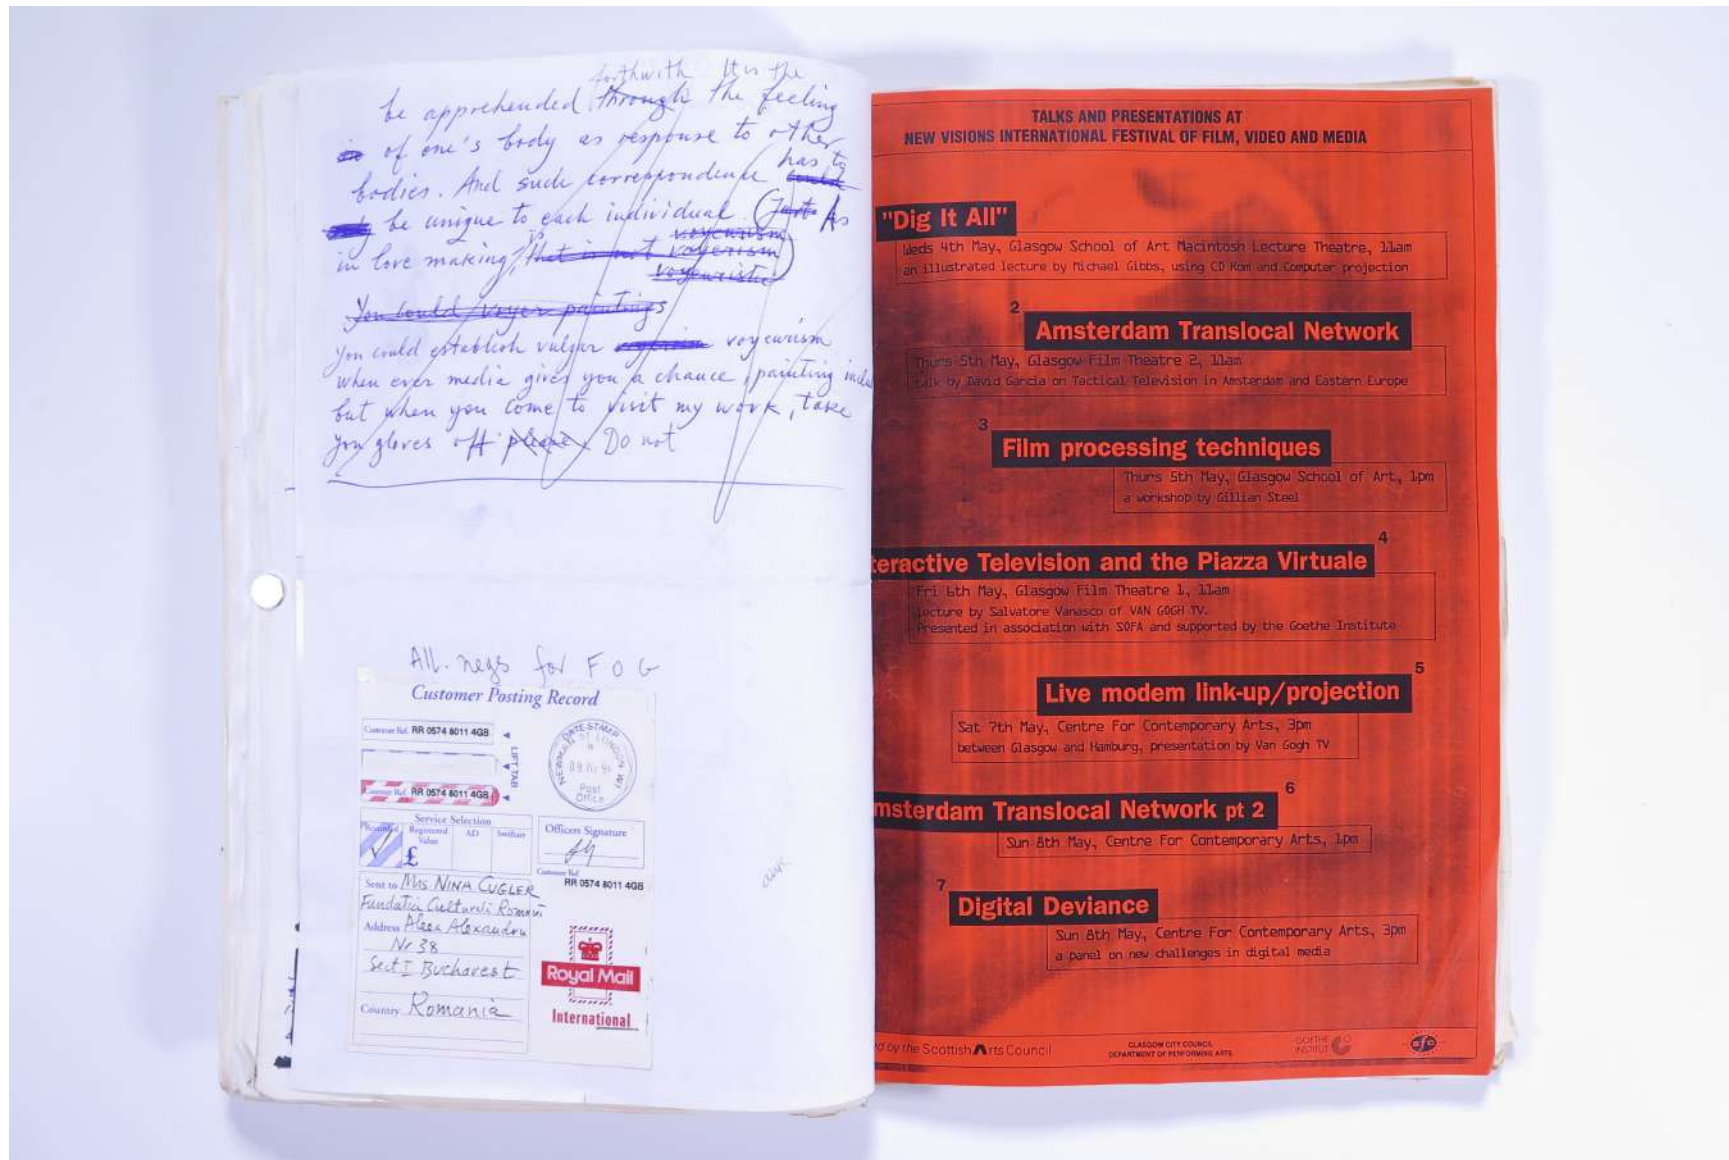 forthwith It is the
be apprehended through the feeling
in of one's body as response to other
bodies. And such correspondence could has to
only be unique to each individual. (Just As
in love making, is that is not voyerism voyeurism
voyeuristic)
You could voyer paintings
You could establish vulgar voyeurism
when ever media gives you a chance, painting inclu
but when you come to visit my work, take
you gloves off please. Do not
All. negs for F O G
Customer Posting Record
Customer Ref. RR 0574 8011 4GB
LIFT TAB
Customer Ref. RR 0574 8011 4GB
DATE STAMP
NEWMAN ST LONDON W1
Post
Office
Service Selection
Recorded
Registered Value
AD
Swiftair
£
Officers Signature
Customer Ref
RR 0574 8011 4GB
Sent to Mrs NINA CUGLER
Fundatia Culturală Română
Address Aleea Alexandru
Nr 38
Sect I Bucharest
Country Romania
Royal Mail
International
TALKS AND PRESENTATIONS AT
NEW VISIONS INTERNATIONAL FESTIVAL OF FILM, VIDEO AND MEDIA
"Dig It All"
Weds 4th May, Glasgow School of Art Macintosh Lecture Theatre, 11am
an illustrated lecture by Michael Gibbs, using CD Rom and Computer projection
2
Amsterdam Translocal Network
Thurs 5th May, Glasgow Film Theatre 2, 11am
talk by David Garcia on Tactical Television in Amsterdam and Eastern Europe
3
Film processing techniques
Thurs 5th May, Glasgow School of Art, 1pm
a workshop by Gillian Steel
4
teractive Television and the Piazza Virtuale
Fri 6th May, Glasgow Film Theatre 1, 11am
lecture by Salvatore Vanasco of VAN GOGH TV.
Presented in association with SOFA and supported by the Goethe Institute
5
Live modem link-up/projection
Sat 7th May, Centre For Contemporary Arts, 3pm
between Glasgow and Hamburg, presentation by Van Gogh TV
6
msterdam Translocal Network pt 2
Sun 8th May, Centre For Contemporary Arts, 1pm
7
Digital Deviance
Sun 8th May, Centre For Contemporary Arts, 3pm
a panel on new challenges in digital media
d by the Scottish Arts Council
GLASGOW CITY COUNCIL
DEPARTMENT OF PERFORMING ARTS
GOETHE
INSTITUT
sfc